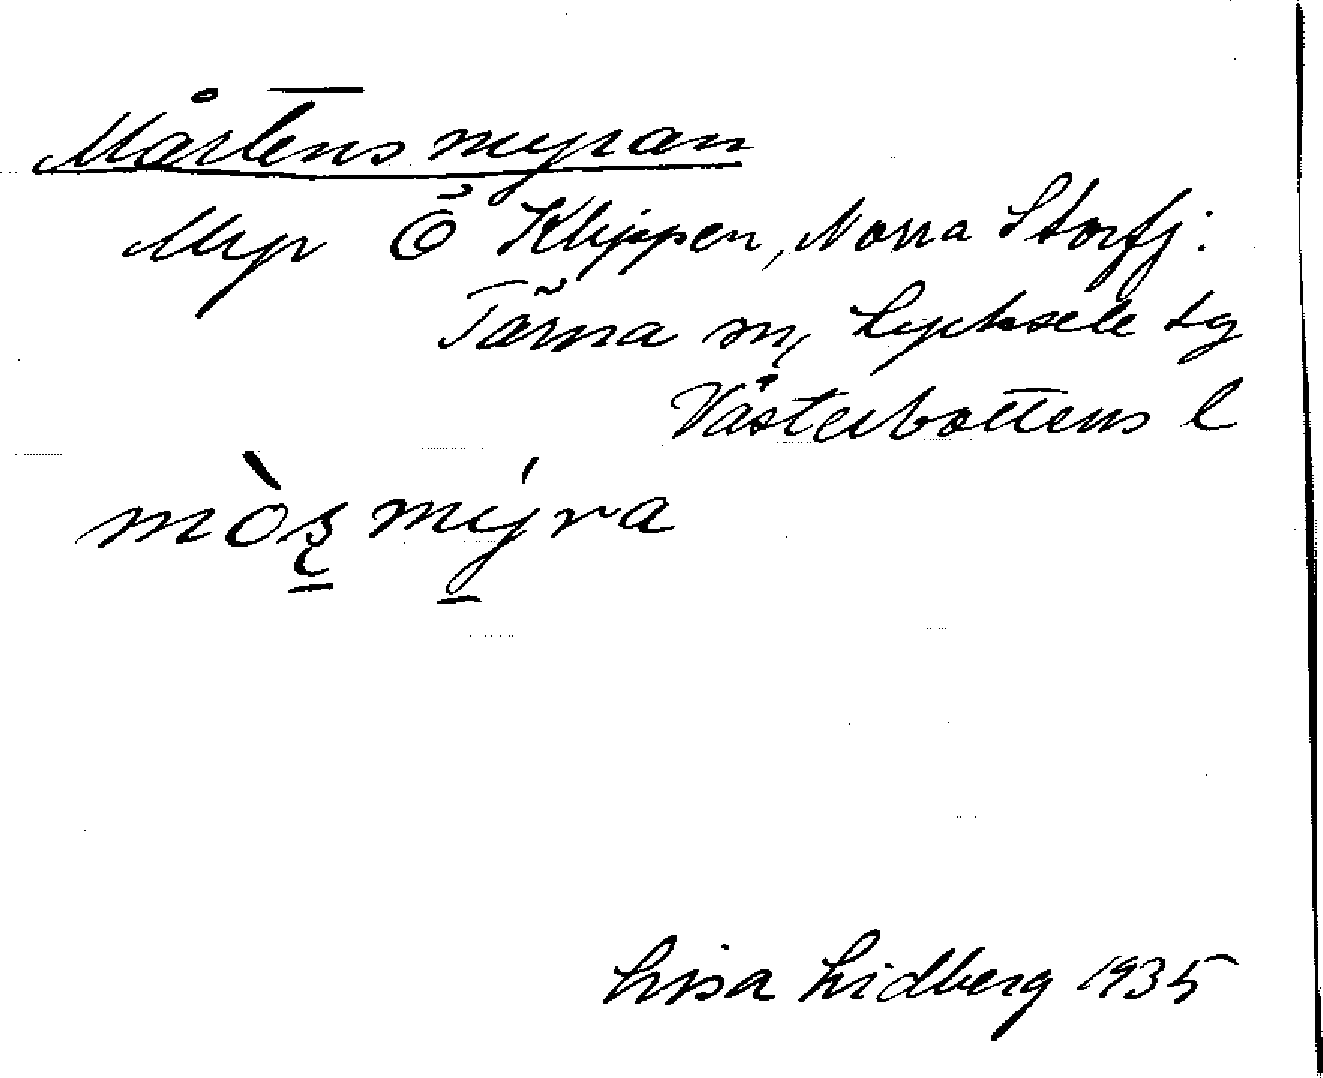 Mårtensmyran
Myr Ö Klippen, Norra Storfj:
Tärna sn, Lycksele tg
Västerbottens l
mòʂmýra
Lisa Lidberg 1935